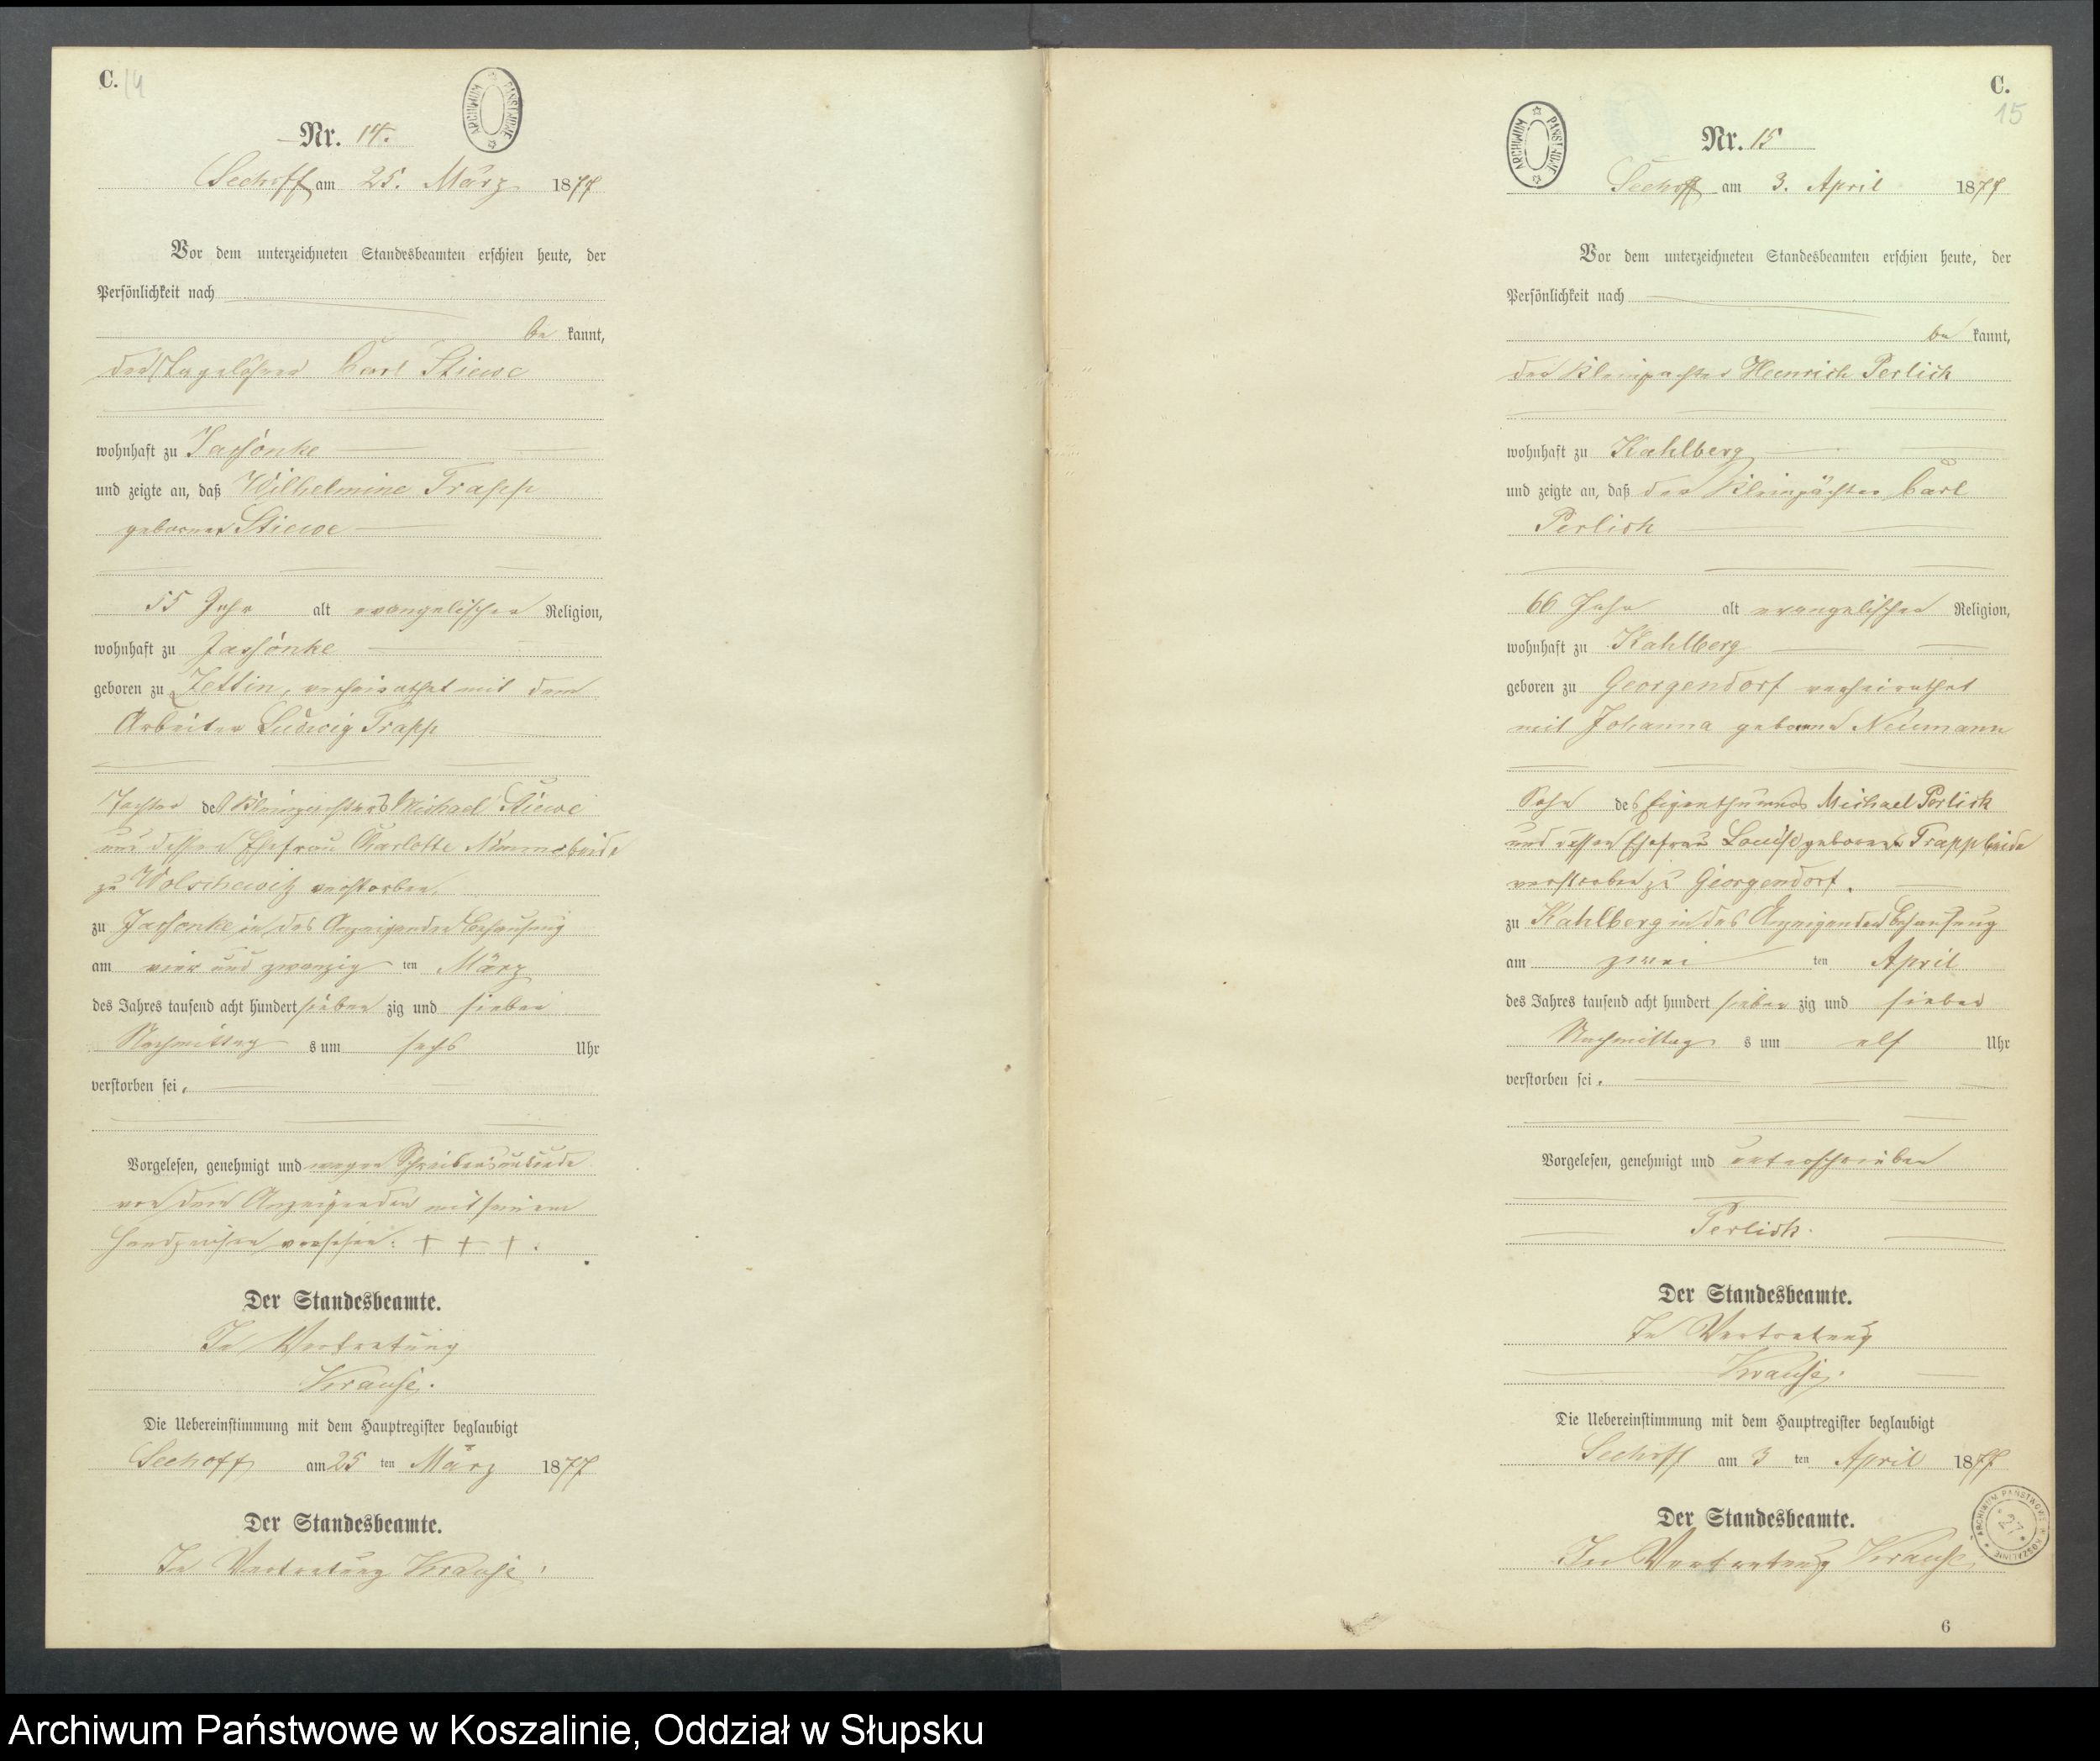 C. 14
ARCHIWUM PAŃSTWOWE
Nr. 14.
Seehoff am 25. März 1877
Vor dem unterzeichneten Standesbeamten erschien heute, der
Persönlichkeit nach
be kannt,
der Tagelöhner Carl Stiewe
wohnhaft zu Jassonke
und zeigte an, daß Wilhelmine Trapp
geborene Stiewe
55 Jahr alt evangelischer Religion,
wohnhaft zu Jassonke
geboren zu Zettin, verheirathet mit dem
Arbeiter Ludwig Trapp
Tochter des Kleinpächters Michael Stiewe
und dessen Ehefrau Charlotte beide
zu Wolschewitz verstorben,
zu Jassonke in des Anzeigenden Behausung
am vier und zwanzig ten März
des Jahres tausend acht hundert sieben zig und sieben
Nachmittag s um sechs Uhr
verstorben sei.
Vorgelesen, genehmigt und wegen Schreibensunkunde
von dem Anzeigenden mit seinem
Handzeichen versehen: + + + .
Der Standesbeamte.
In Vertretung
Krause.
Die Uebereinstimmung mit dem Hauptregister beglaubigt
Seehoff am 25 ten März 1877
Der Standesbeamte.
In Vertretung Krause.
C.
15
ARCHIWUM PAŃSTWOWE
Nr. 15
Seehoff am 3. April 1877
Vor dem unterzeichneten Standesbeamten erschien heute, der
Persönlichkeit nach
be kannt,
der Kleinpachter Heinrich Perlick
wohnhaft zu Kahlberg
und zeigte an, daß der Kleinpächter Carl
Perlick
66 Jahr alt evangelischer Religion,
wohnhaft zu Kahlberg
geboren zu Georgendorf verheirathet
mit Johanna geborene Neumann
Sohn des Eigenthümers Michael Perlick
und dessen Ehefrau Louise geborene Trapp beide
verstorben zu Georgendorf.
zu Kahlberg in des Anzeigenden Behausung
am zwei ten April
des Jahres tausend acht hundert sieben zig und sieben
Nachmittag s um elf Uhr
verstorben sei.
Vorgelesen, genehmigt und unterschrieben
Perlick.
Der Standesbeamte.
In Vertretung
Krause.
Die Uebereinstimmung mit dem Hauptregister beglaubigt
Seehoff am 3 ten April 1877
Der Standesbeamte.
In Vertretung Krause
ARCHIWUM PAŃSTWOWE W KOSZALINIE
27
6
Archiwum Państwowe w Koszalinie, Oddział w Słupsku